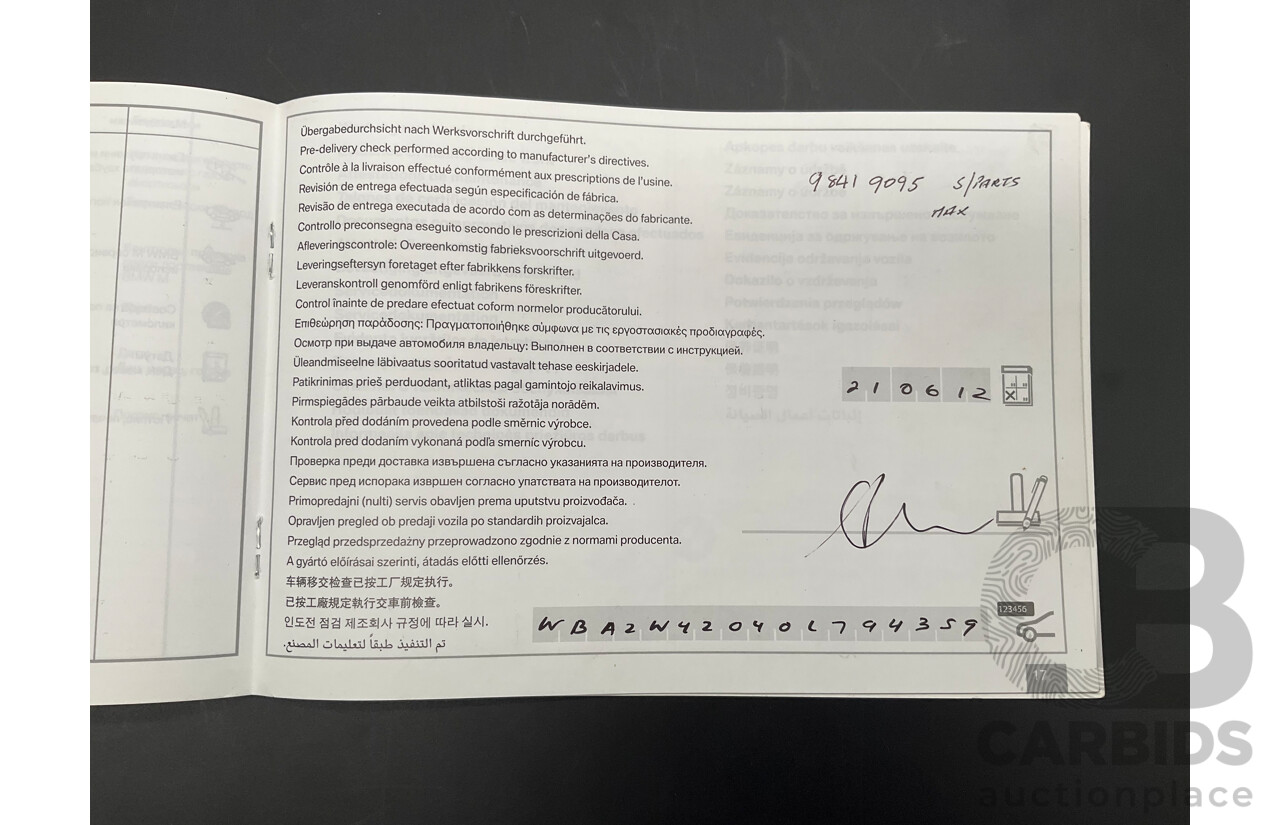 Übergabedurchsicht nach Werksvorschrift durchgeführt.
Pre-delivery check performed according to manufacturer's directives.
Contrôle à la livraison effectué conformément aux prescriptions de l'usine.
Revisión de entrega efectuada según especificación de fábrica.
Revisão de entrega executada de acordo com as determinações do fabricante.
Controllo preconsegna eseguito secondo le prescrizioni della Casa.
Afleveringscontrole: Overeenkomstig fabrieksvoorschrift uitgevoerd.
Leveringseftersyn foretaget efter fabrikkens forskrifter.
Leveranskontroll genomförd enligt fabrikens föreskrifter.
Control înainte de predare efectuat coform normelor producătorului.
Επιθεώρηση παράδοσης: Πραγματοποιήθηκε σύμφωνα με τις εργοστασιακές προδιαγραφές.
Осмотр при выдаче автомобиля владельцу: Выполнен в соответствии с инструкцией.
Üleandmiseelne läbivaatus sooritatud vastavalt tehase eeskirjadele.
Patikrinimas prieš perduodant, atliktas pagal gamintojo reikalavimus.
Pirmspiegādes pārbaude veikta atbilstoši ražotāja norādēm.
Kontrola před dodáním provedena podle směrnic výrobce.
Kontrola pred dodaním vykonaná podľa smerníc výrobcu.
Проверка преди доставка извършена съгласно указанията на производителя.
Сервис пред испорака извршен согласно упатствата на производителот.
Primopredajni (nulti) servis obavljen prema uputstvu proizvođača.
Opravljen pregled ob predaji vozila po standardih proizvajalca.
Przegląd przedsprzedażny przeprowadzono zgodnie z normami producenta.
A gyártó előírásai szerinti, átadás előtti ellenőrzés.
车辆移交检查已按工厂规定执行。
已按工廠規定執行交車前檢查。
인도전 점검 제조회사 규정에 따라 실시.
تم التنفيذ طبقاً لتعليمات المصنع.
9841 9095 S/PARTS
MAX
210612
123456
WBA2W42040L794359
17
CARBIDS
auctionplace